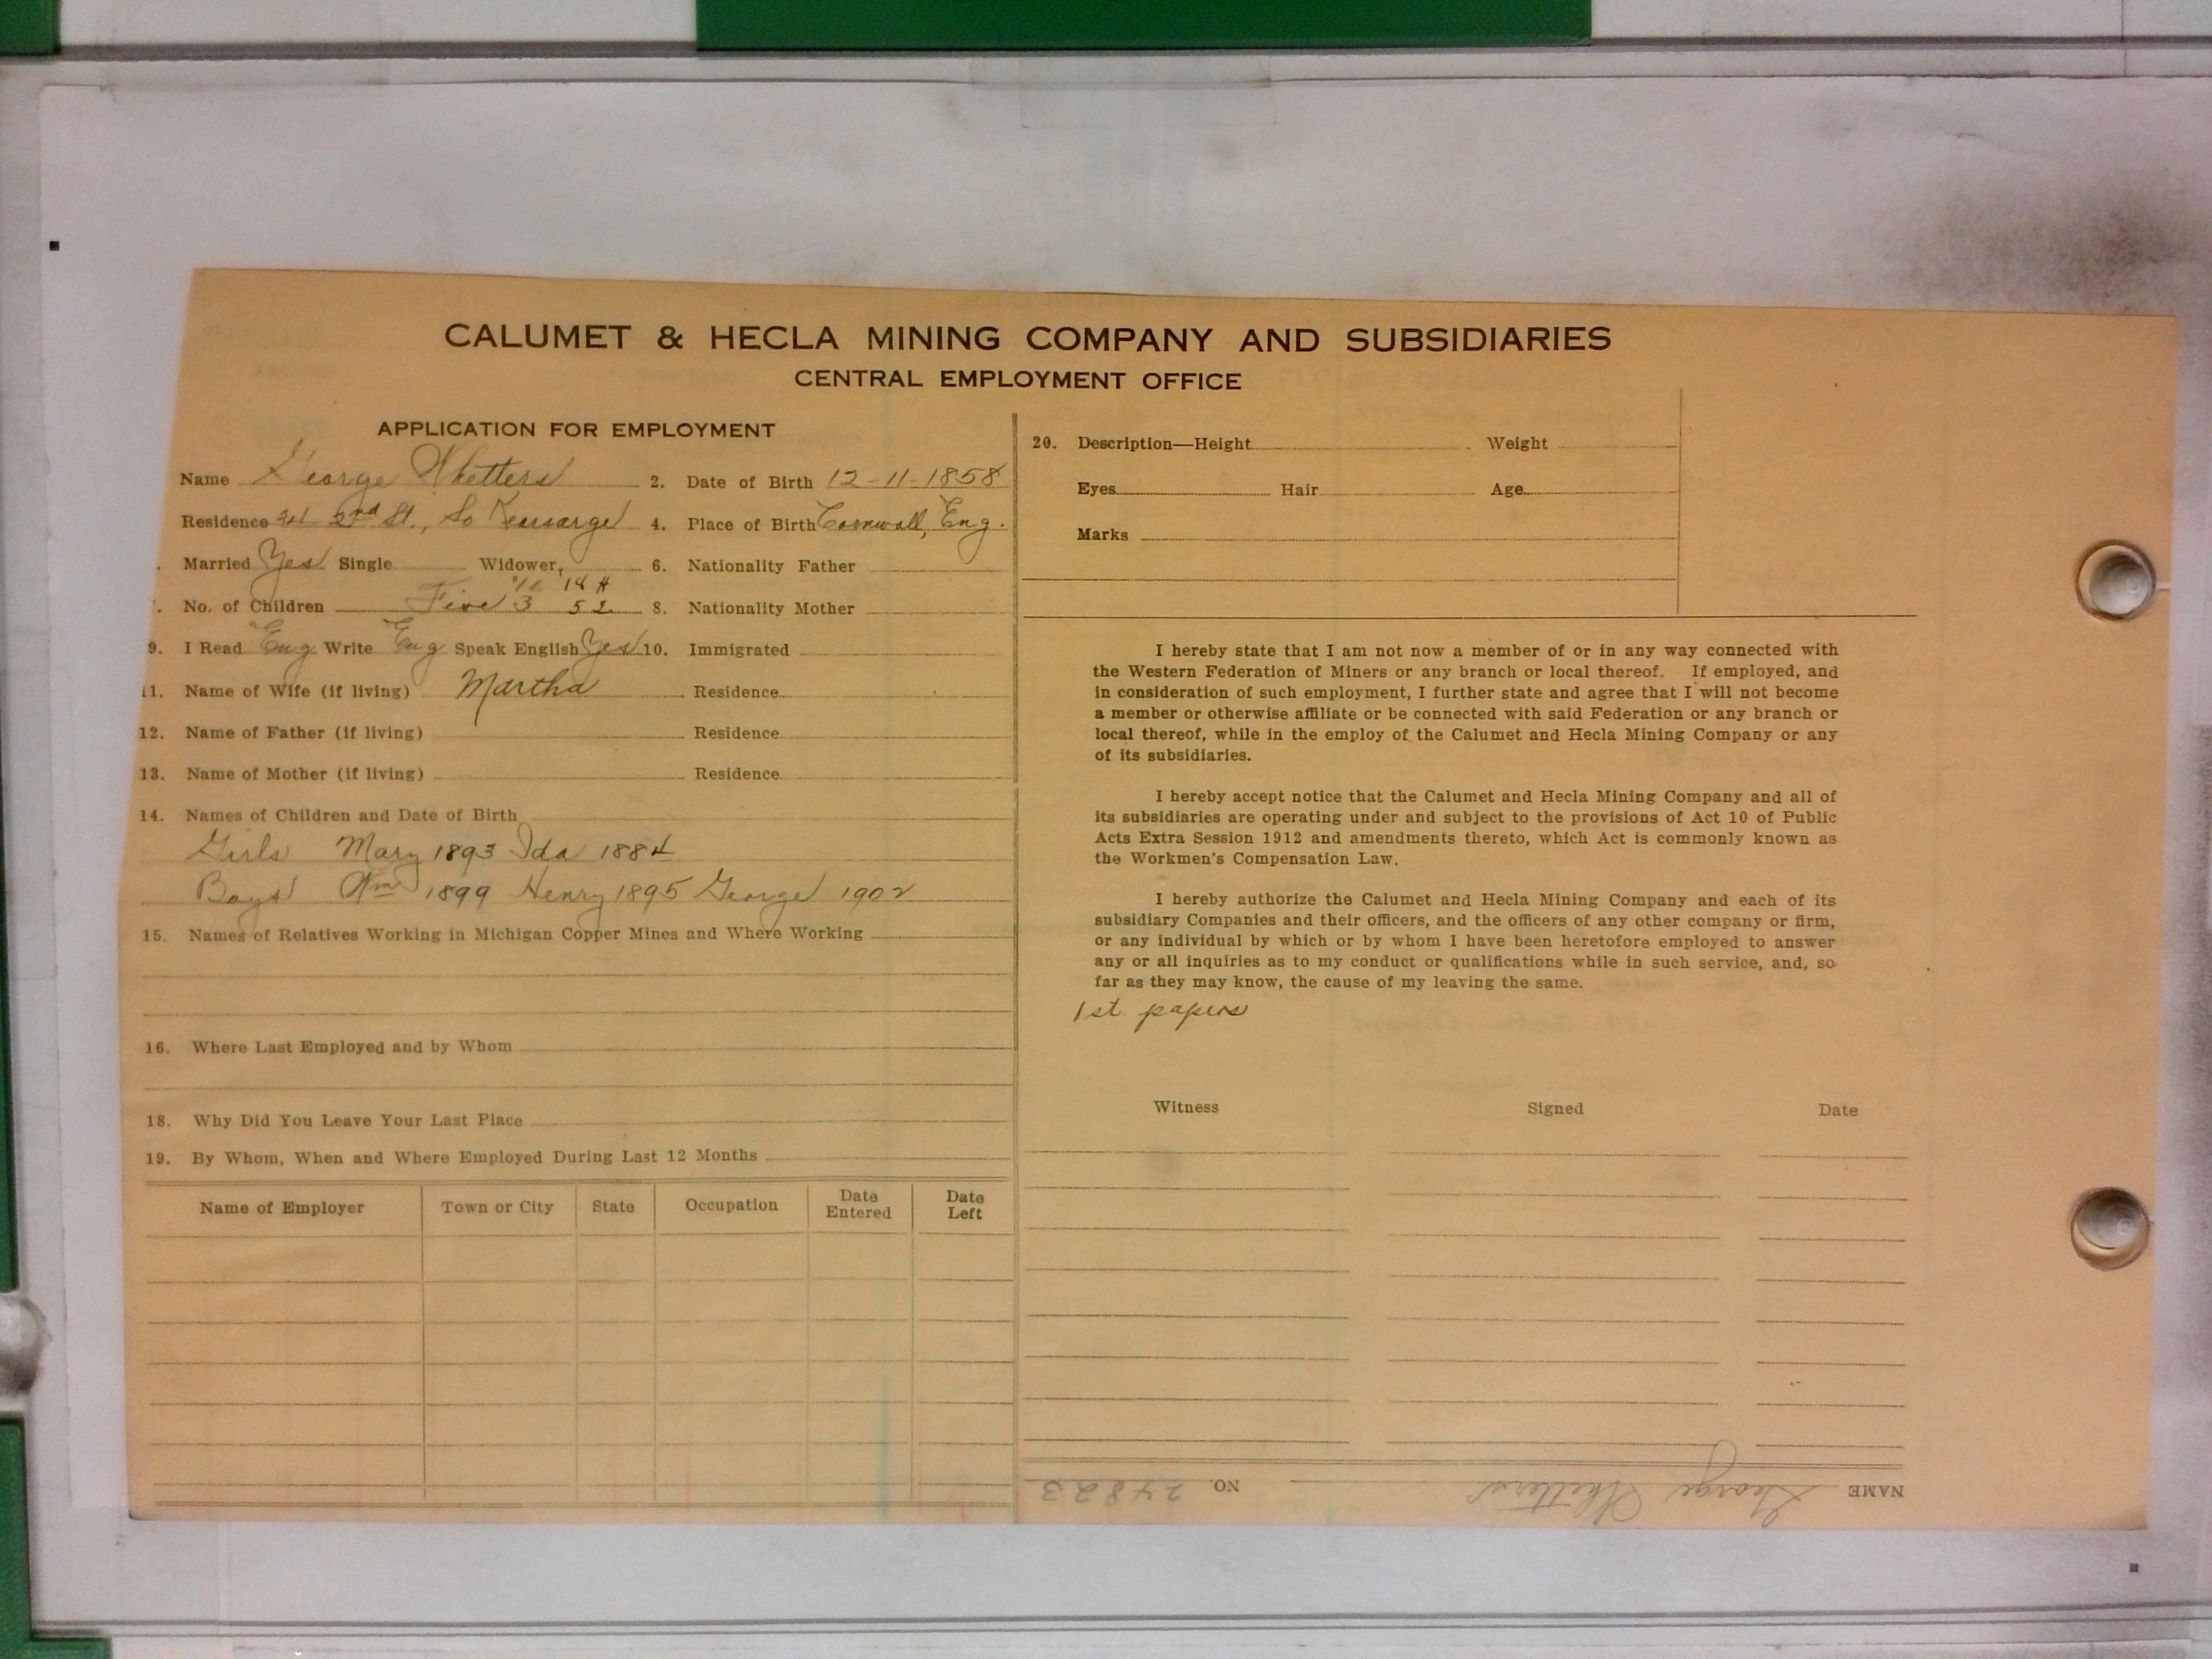 CALUMET & HECLA MINING COMPANY AND SUBSIDIARIES
CENTRAL EMPLOYMENT OFFICE
APPLICATION FOR EMPLOYMENT
Name George Whetters 2. Date of Birth 12-11-1858
Residence 24 2nd St., So Kearsarge 4. Place of Birth Cornwall, Eng.
Married Yes Single Widower 6. Nationality Father
No. of Children Five 3 5 2 8. Nationality Mother
9. I Read Eng Write Eng Speak English Yes 10. Immigrated
11. Name of Wife (if living) Martha Residence
12. Name of Father (if living) Residence
13. Name of Mother (if living) Residence
14. Names of Children and Date of Birth
Girls Mary 1893 Ida 1884
Boys Wm 1899 Henry 1895 George 1902
15. Names of Relatives Working in Michigan Copper Mines and Where Working
16. Where Last Employed and by Whom
18. Why Did You Leave Your Last Place
19. By Whom, When and Where Employed During Last 12 Months
Name of Employer Town or City State Occupation Date Entered Date Left
20. Description—Height Weight
Eyes Hair Age
Marks
I hereby state that I am not now a member of or in any way connected with
the Western Federation of Miners or any branch or local thereof. If employed, and
in consideration of such employment, I further state and agree that I will not become
a member or otherwise affiliate or be connected with said Federation or any branch or
local thereof, while in the employ of the Calumet and Hecla Mining Company or any
of its subsidiaries.
I hereby accept notice that the Calumet and Hecla Mining Company and all of
its subsidiaries are operating under and subject to the provisions of Act 10 of Public
Acts Extra Session 1912 and amendments thereto, which Act is commonly known as
the Workmen's Compensation Law.
I hereby authorize the Calumet and Hecla Mining Company and each of its
subsidiary Companies and their officers, and the officers of any other company or firm,
or any individual by which or by whom I have been heretofore employed to answer
any or all inquiries as to my conduct or qualifications while in such service, and, so
far as they may know, the cause of my leaving the same.
1st papers
Witness Signed Date
NAME George Whetters NO. 24823